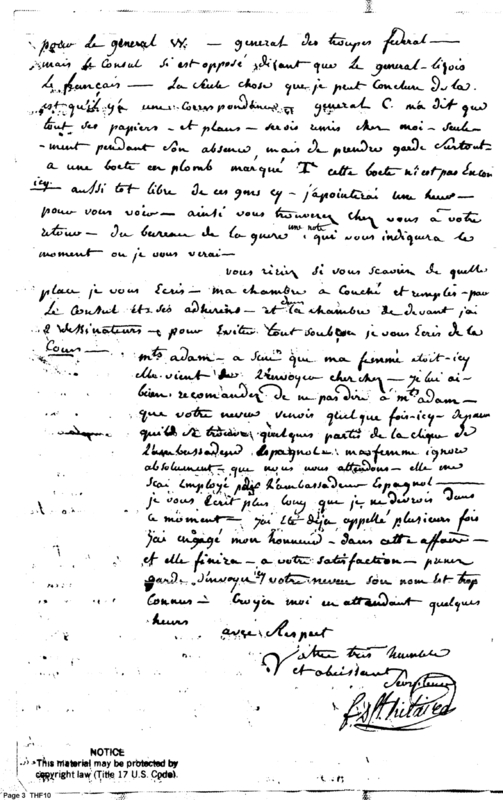 pour Le general W. — general des troupes federal —
mais le Consul si est opposé disant que Le general
Le français — La seule chose que je peut Conclure de la
est qu'il y a une Correspondance general C. m'a dit que
tout ses papiers — et plans — serois remis chez moi — seule-
-ment pendant son absence, mais de prendre garde surtout
a une boete en plomb marqué T cette boete n'est pas Encore
icy — aussi tot libre de ces gens cy — j'apointerai une heure —
pour vous voir — ainsi vous trouverez chez vous à votre
retour — du bureau de la guere une note, qui vous indiquera le
moment ou je vous verai —
vous ririez si vous scaviez de quelle
place je vous Ecris — ma chambre a Couché et remplis par
Le Consul et ses adherens — et dans la chambre de devant j'ai
2 dessinateurs — pour Eviter tout soubçon je vous Ecris de la
Cour —
mts adam — a scu que ma femme etoit icy
elle vient de l'envoyer chercher — je lui ai
bien recomander de ne pas dire à mts adam —
que votre neveu venois quelque fois icy — depeur
qu'il se trouva quelques partis de la clique de
L'ambassadeur Espagnole. ma femme ignore
absolument — que nous nous attendons — elle me
scai Employé par L'ambassadeur Espagnol —
je vous Ecrit plus long que je ne devrois dans
ce moment — j'ai Eté déja appellé plusieurs fois
j'ai engagé mon honneur — dans cette affaire —
et elle finira — a votre satisfaction — prenez
garde d'envoyer icy votre neveu son nom Est trop
Connus — Croyez moi en attendant quelques
heurs
avec Respect
Votre très humble
et obeissant
Serviteur
NOTICE
This material may be protected by
copyright law (Title 17 U.S. Code).
Page 3 THF10